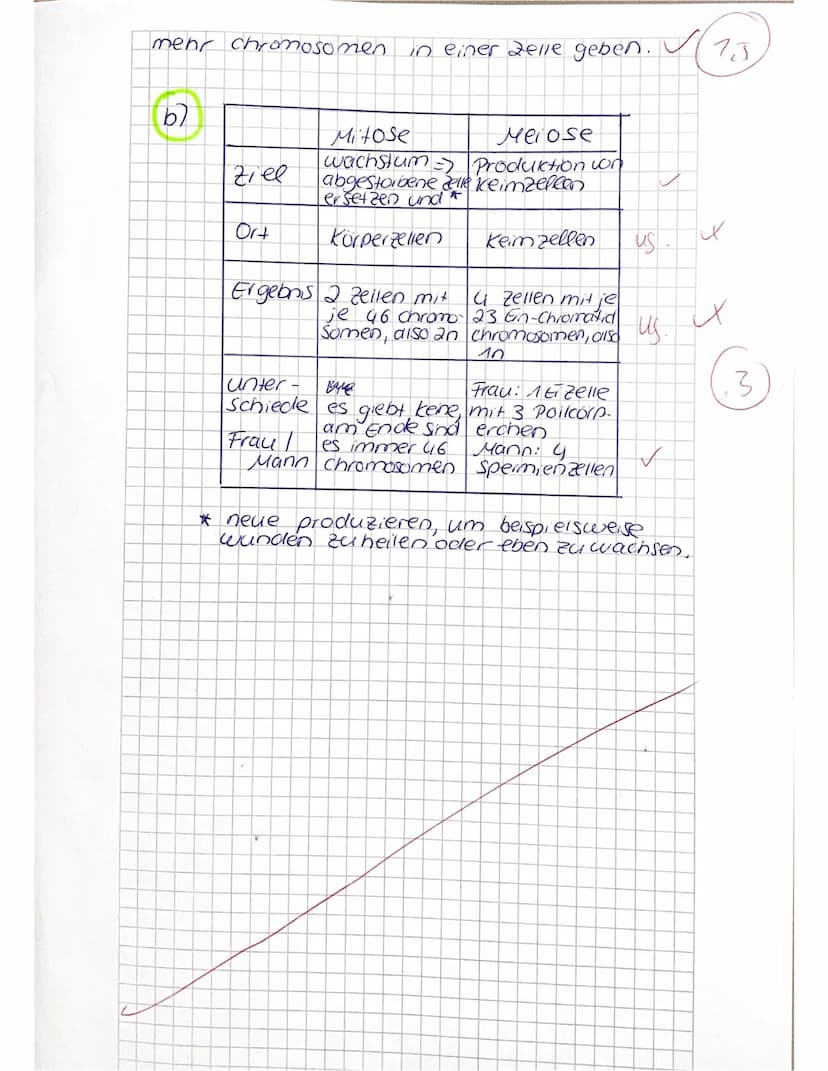 mehr chromosomen in einer zelle geben. ✓ 1,5
b)
Mitose Meiose
Ziel
wachstum => abgestorbene zelle ersetzen und *
Produktion von keimzellen
✓
Ort
Körperzellen
keimzellen
us.
Ergebnis
2 zellen mit
je 46 chromo-
somen, also 2n
4 zellen mit je
23 Ein-chromatid
chromosomen, also
1n
us.
3
unter-
schiede
Frau/
Mann
es giebt kene,
am Ende sind
es immer 46
chromosomen
Frau: 1 Eizelle
mit 3 Poilcörp-
erchen
Mann: 4
Spermienzellen
✓
* neue produzieren, um beispielsweise
wunden zu heilen oder eben zu wachsen.